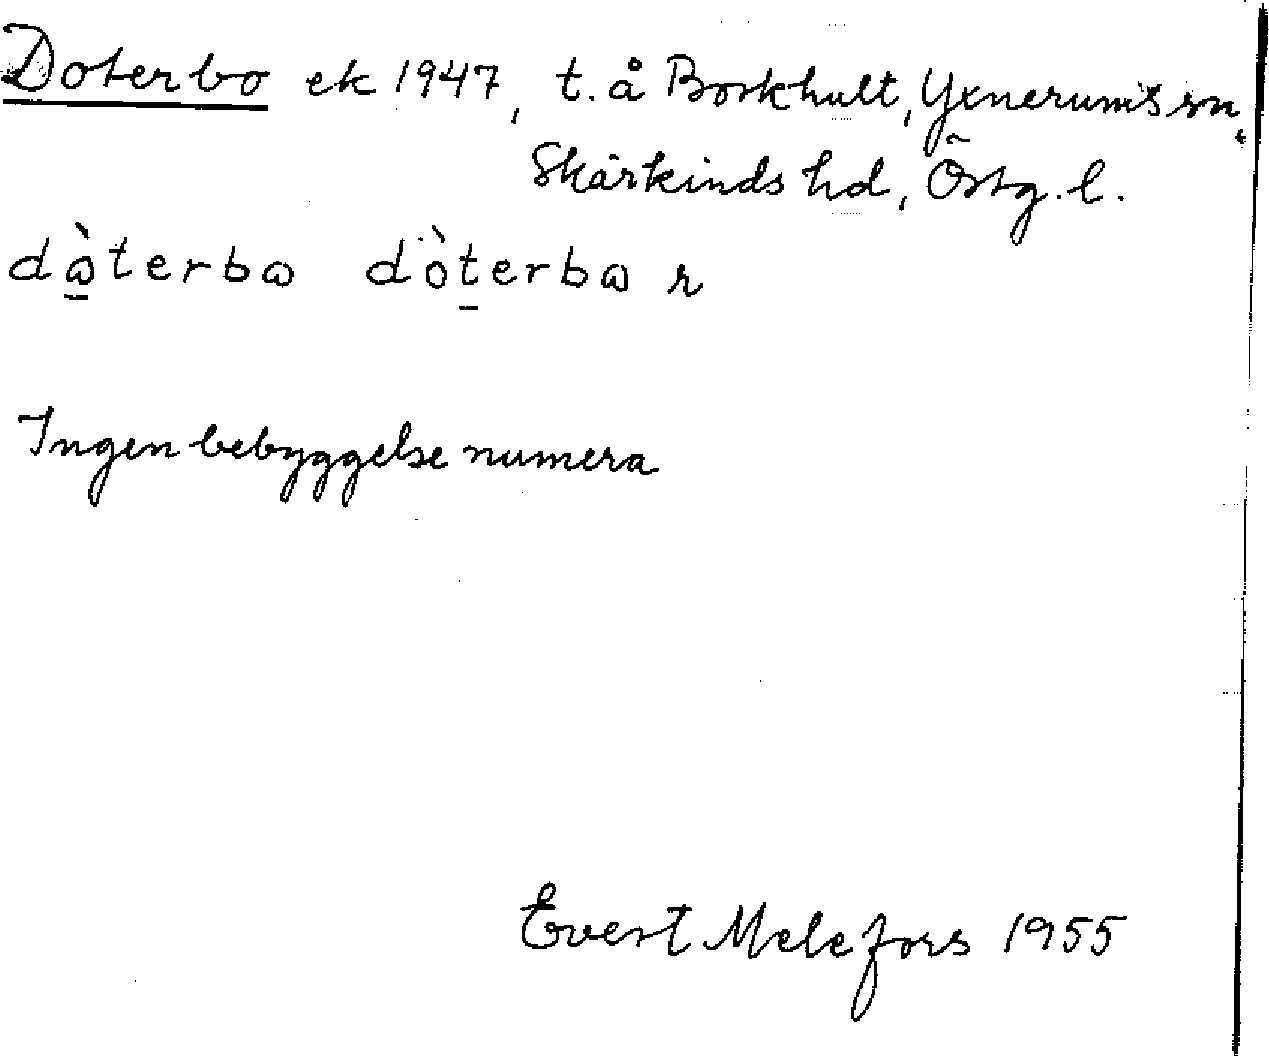 Doterbo ek 1947, t. å Borkhult, Yxnerums sn,
Skärkinds hd, Östg. l.
dὼ̱terbω dòt̠erbω r
Ingen bebyggelse numera
Evert Melefors 1955